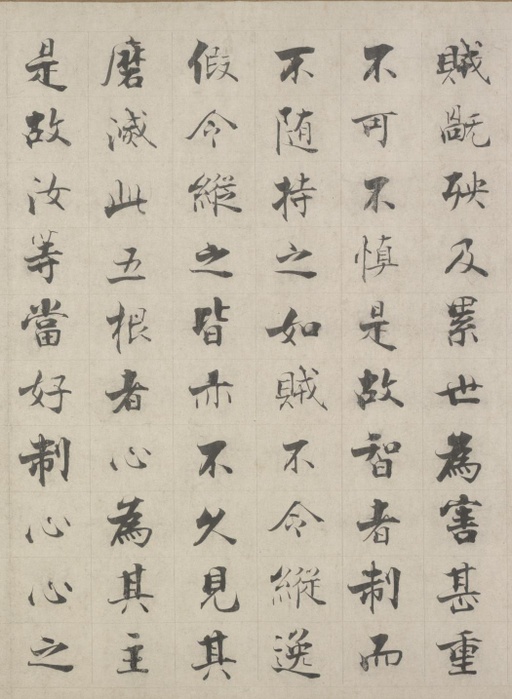 賊旤殃及累世為害甚重
不可不慎是故智者制而
不随持之如賊不令縱逸
假令縱之皆亦不久見其
磨滅此五根者心為其主
是故汝等當好制心心之